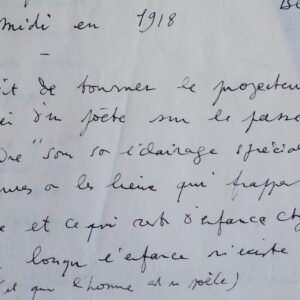 Be
midi en 1918
–
it de tourner le projecteu
d'un poète sur le passe
"sous son éclairage spécial
ou les lieux qui frapper
e et ce qui reste d'enfance ch
lorsque l'enfance n'existe
(et que l'homme est un poète)